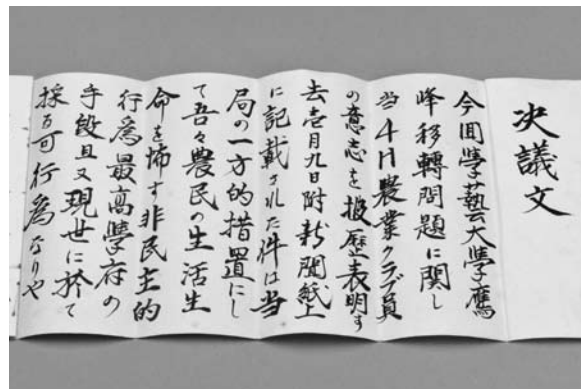 決議文
今囬學藝大學鷹
峰移轉問題に関し
当4H農業クラブ員
の意志を披歴表明す
去壱月九日附新聞紙上
に記載された件は当
局の一方的措置にし
て吾々農民の生活生
命を怖す非民主的
行爲最高學府の
手段且又現世に於て
採る可行爲なりや